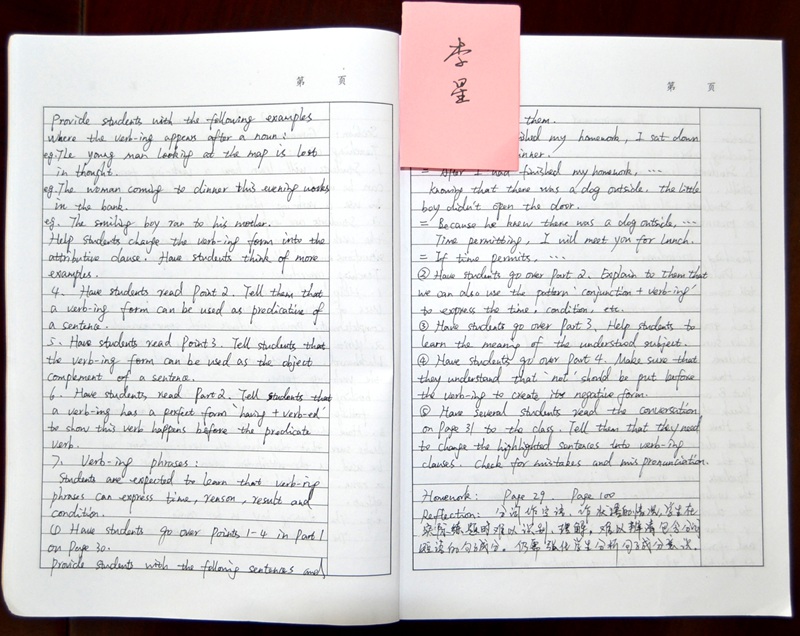 第 页
Provide students with the following examples
where the verb-ing appears after a noun:
eg. The young man looking at the map is lost
in thought.
eg. The woman coming to dinner this evening works
in the bank.
eg. The smiling boy ran to his mother.
Help students change the verb-ing form into the
attributive clause. Have students think of more
examples.
4. Have students read Point 2. Tell them that
a verb-ing form can be used as predicative of
a sentence.
5. Have students read Point 3. Tell students that
the verb-ing form can be used as the object
complement of a sentence.
6. Have students read Part 2. Tell students that
a verb-ing has a perfect form 'having + verb-ed'
to show this verb happens before the predicate
verb.
7. Verb-ing phrases:
Students are expected to learn that verb-ing
phrases can express time, reason, result and
condition.
① Have students go over Points 1-4 in Part 1
on Page 30.
Provide students with the following sentences and
李星
第 页
them.
shed my homework, I sat down
inner.
= After I had finished my homework, ...
Knowing that there was a dog outside, the little
boy didn't open the door.
= Because he knew there was a dog outside, ...
Time permitting, I will meet you for lunch.
= If time permits, ...
② Have students go over Part 2. Explain to them that
we can also use the pattern 'conjunction + verb-ing'
to express the time, condition, etc.
③ Have students go over Part 3. Help students to
learn the meaning of the understood subject.
④ Have students go over Part 4. Make sure that
they understand that 'not' should be put before
the verb-ing to create its negative form.
⑤ Have several students read the conversation
on Page 31 to the class. Tell them that they need
to change the highlighted sentences into verb-ing
clauses. Check for mistakes and mispronunciation.
Homework: Page 29. Page 100
Reflection: 分词作定语、作状语的情况, 学生在
实际练题时难以识别、理解, 难以辨清包含分词
短语的句子成分。仍需强化学生分析句子成分意识。